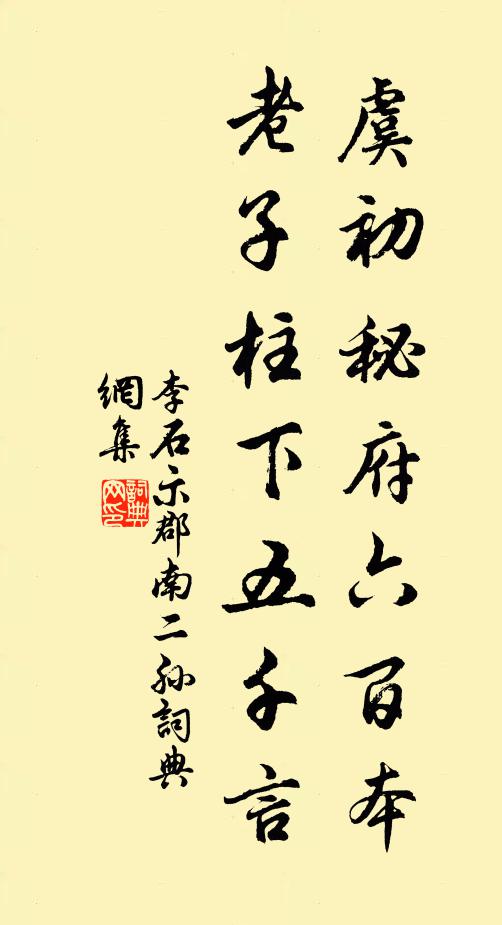 虞初秘府六百本
老子柱下五千言
李石示郡南二孙詞典
網集
詞典網印